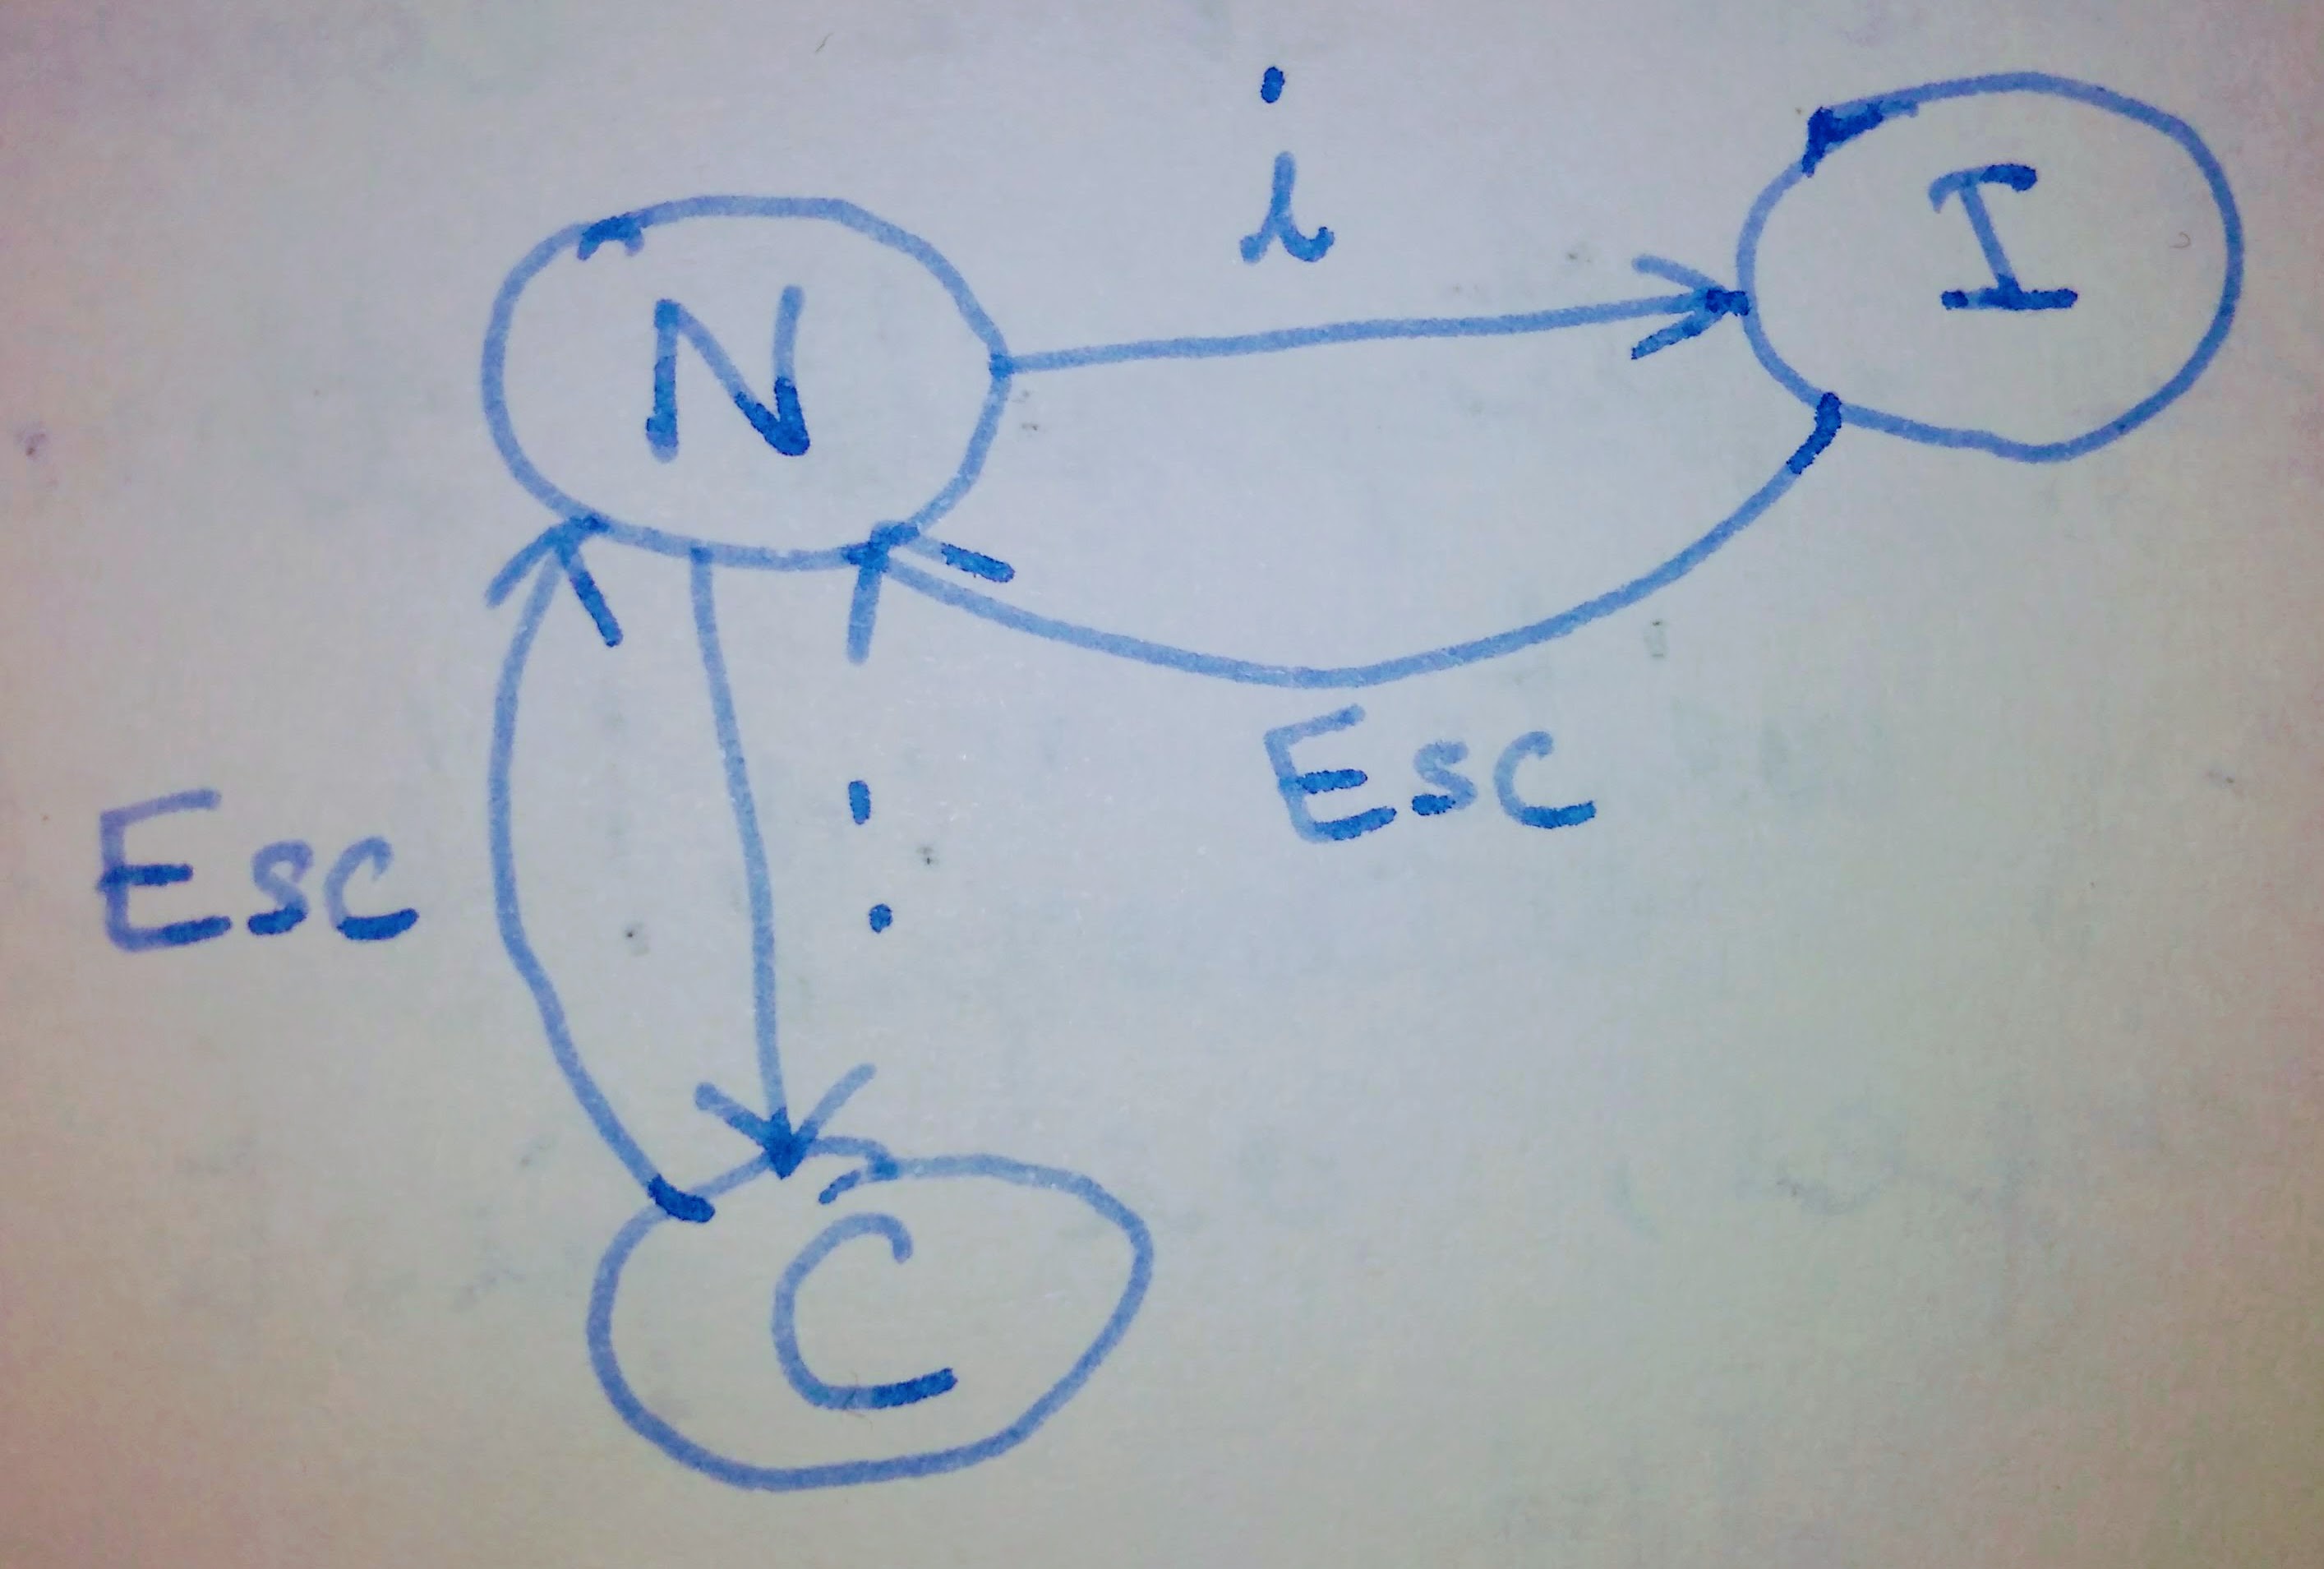 i
I
N
Esc
:
Esc
C